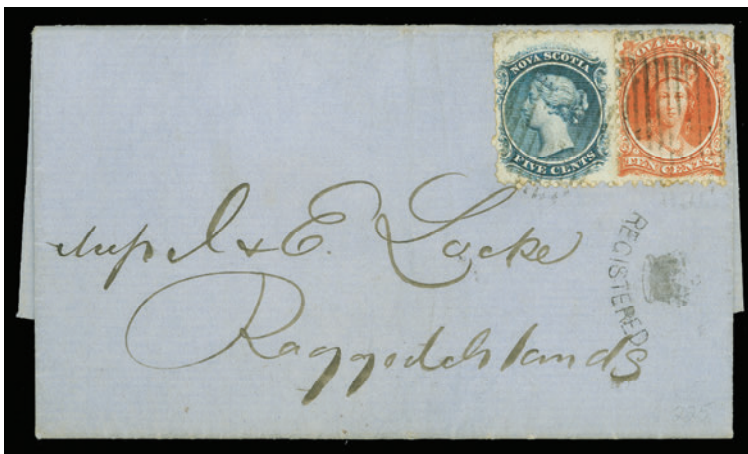 NOVA SCOTIA
FIVE CENTS
NOVA SCOTIA
TEN CENTS
J & E. Locke
Ragged Islands
REGISTERED
225